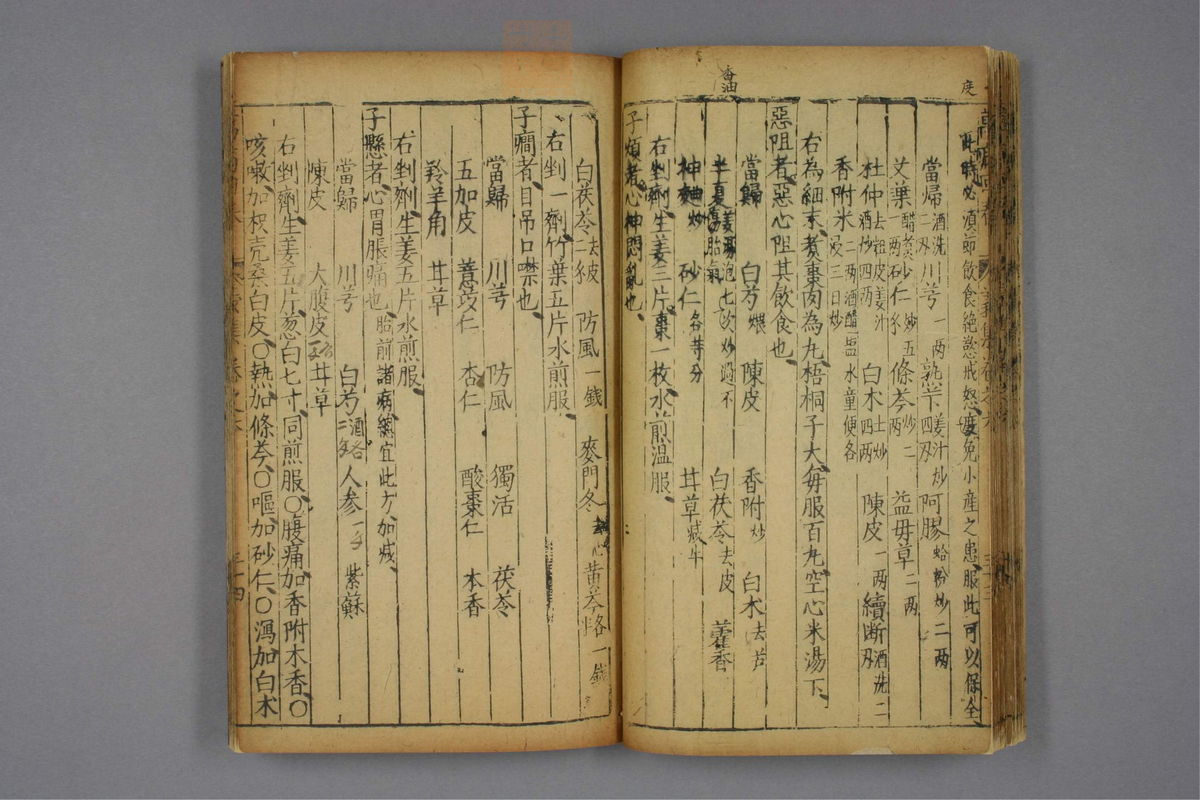 此時必須節飲食絶慾戒怒庻免小產之患服此可以保全
當歸酒洗二刄川芎一两熟芐四刄姜汁炒阿膠蛤粉炒二两
艾葉醋煮一两砂仁炒五條芩炒二两益母草二两
杜仲去粗皮姜汁酒炒四两白朮土炒四两陳皮一两續断酒洗二刄
香附米二两酒醋塩水童便各浸三日炒
右為細末煮棗肉為丸梧桐子大每服百丸空心米湯下
惡阻者惡心阻其飲食也
當歸 白芍煨 陳皮 香附炒 白朮去芦
半夏姜湯泡七次炒過不傷胎氣 白茯苓去皮 藿香
神麯炒 砂仁各等分 甘草减半
右剉劑生姜三片棗一枚水煎温服
子煩者心神悶亂也
香油
白茯苓去皮二 防風一錢 麥門冬去心黃芩一錢
右剉一劑竹葉五片水煎服
子癇者目吊口噤也
當歸 川芎 防風 獨活 茯苓
五加皮 薏苡仁 杏仁 酸棗仁 木香
羚羊角 甘草
右剉劑生姜五片水煎服
子懸者心胃脹痛也胎前諸病緫宜此方加减
當歸 川芎 白芍酒人參 紫蘇
陳皮 大腹皮甘草
右剉劑生姜五片葱白七寸同煎服○腹痛加香附木香○
咳嗽加枳壳桑白皮○熱加條芩○嘔加砂仁○瀉加白朮